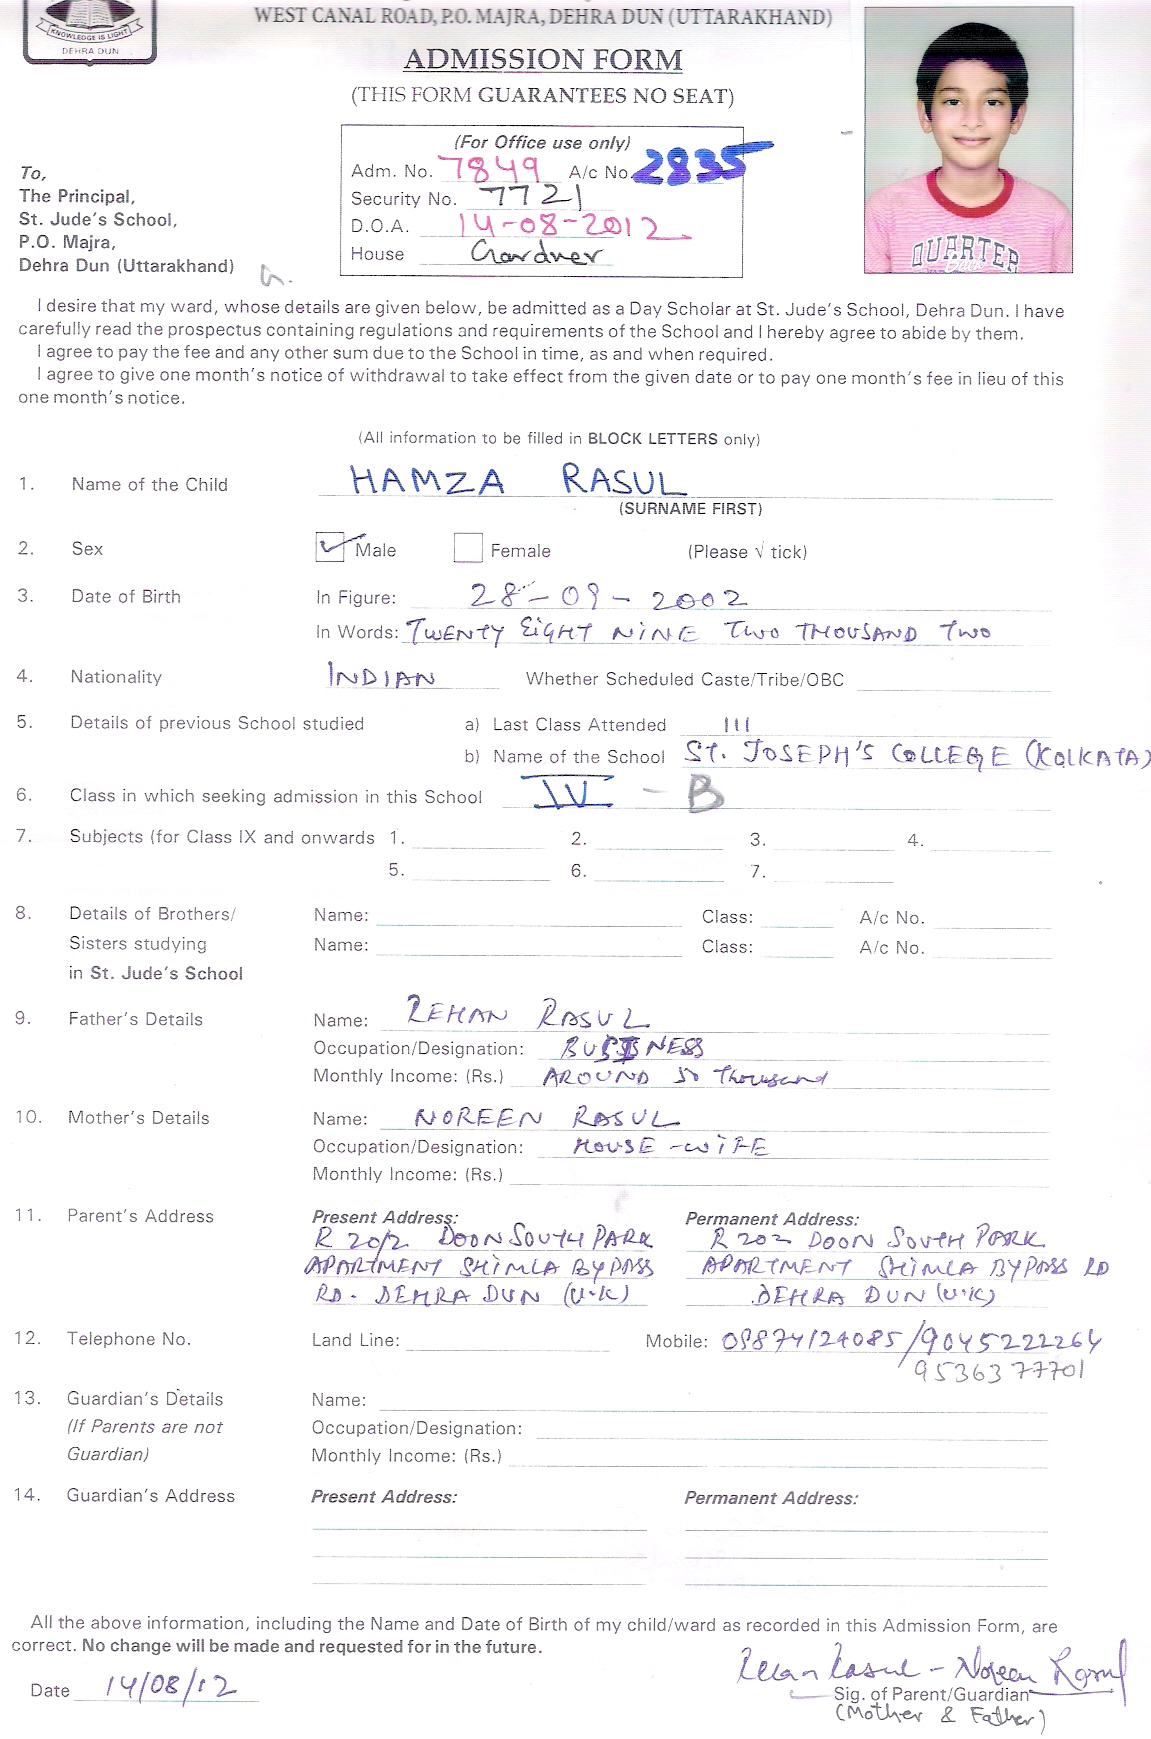 KNOWLEDGE IS LIGHT
DEHRA DUN
WEST CANAL ROAD, P.O. MAJRA, DEHRA DUN (UTTARAKHAND)
ADMISSION FORM
(THIS FORM GUARANTEES NO SEAT)
(For Office use only)
Adm. No. 7849 A/c No. 2835
Security No. 7721
D.O.A. 14-08-2012
House Gardner
To,
The Principal,
St. Jude's School,
P.O. Majra,
Dehra Dun (Uttarakhand)
QUARTER
I desire that my ward, whose details are given below, be admitted as a Day Scholar at St. Jude's School, Dehra Dun. I have
carefully read the prospectus containing regulations and requirements of the School and I hereby agree to abide by them.
I agree to pay the fee and any other sum due to the School in time, as and when required.
I agree to give one month's notice of withdrawal to take effect from the given date or to pay one month's fee in lieu of this
one month's notice.
(All information to be filled in BLOCK LETTERS only)
1. Name of the Child HAMZA RASUL
(SURNAME FIRST)
2. Sex Male Female (Please √ tick)
3. Date of Birth In Figure: 28-09-2002
In Words: TWENTY EIGHT NINE TWO THOUSAND TWO
4. Nationality INDIAN Whether Scheduled Caste/Tribe/OBC
5. Details of previous School studied a) Last Class Attended III
b) Name of the School ST. JOSEPH'S COLLEGE (KOLKATA)
6. Class in which seeking admission in this School IV - B
7. Subjects (for Class IX and onwards 1. 2. 3. 4.
5. 6. 7.
8. Details of Brothers/ Name: Class: A/c No.
Sisters studying Name: Class: A/c No.
in St. Jude's School
9. Father's Details Name: REHAN RASUL
Occupation/Designation: BUSINESS
Monthly Income: (Rs.) AROUND 50 Thousand
10. Mother's Details Name: NOREEN RASUL
Occupation/Designation: HOUSE-WIFE
Monthly Income: (Rs.)
11. Parent's Address Present Address: Permanent Address:
R 202 DOON SOUTH PARK R 202 DOON SOUTH PARK
APARTMENT SHIMLA BYPASS APARTMENT SHIMLA BYPASS RD
RD. DEHRA DUN (U.K) DEHRA DUN (U.K)
12. Telephone No. Land Line: Mobile: 09874124085/9045222264
9536377701
13. Guardian's Details Name:
(If Parents are not Occupation/Designation:
Guardian) Monthly Income: (Rs.)
14. Guardian's Address Present Address: Permanent Address:
All the above information, including the Name and Date of Birth of my child/ward as recorded in this Admission Form, are
correct. No change will be made and requested for in the future.
Rehan Rasul - Noreen Rasul
Date 14/08/12 Sig. of Parent/Guardian
(Mother & Father)